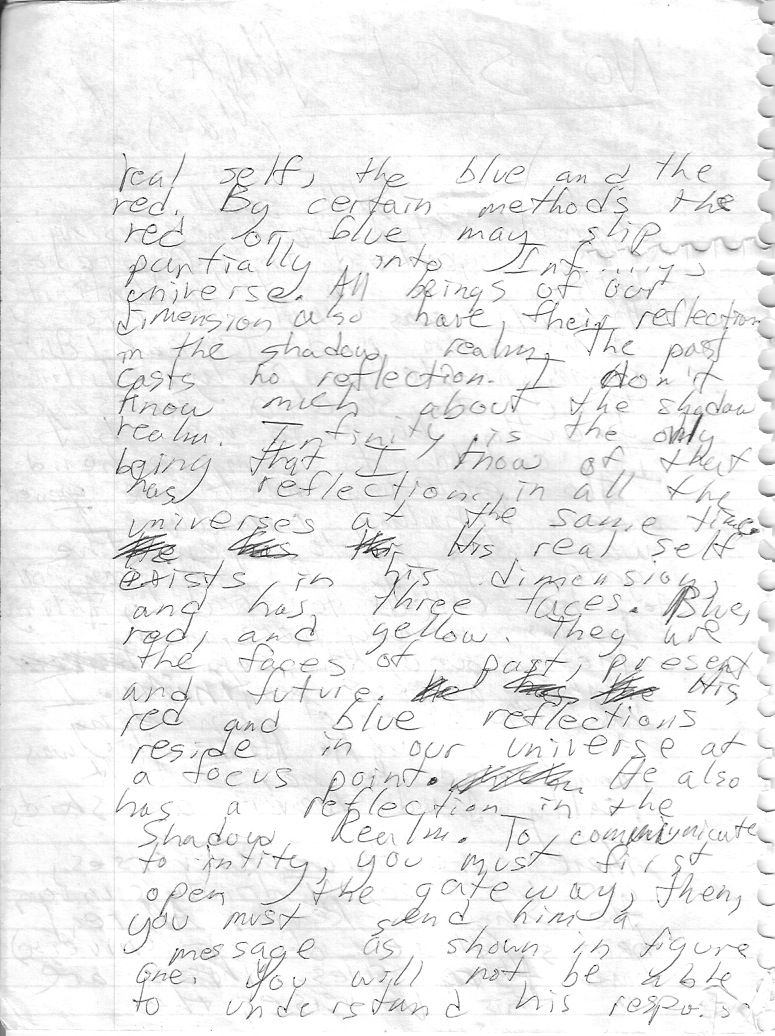 real self, the blue and the
red. By certain methods the
red or blue may slip
partially into
universe. All beings of our
dimension also have their reflection
in the shadow realm, the past
casts no reflection. I don't
know much about the shadow
realm. Infinity is the only
being that I know of that
has reflections in all the
universes at the same time.
His real self
exists in his dimension,
and has three faces. Blue,
red, and yellow. They are
the faces of past, present
and future. His
red and blue reflections
reside in our universe at
a focus point. He also
has a reflection in the
Shadow Realm. To communicate
to intity, you must first
open the gateway, then,
you must send him a
message as shown in figure
one. You will not be able
to understand his